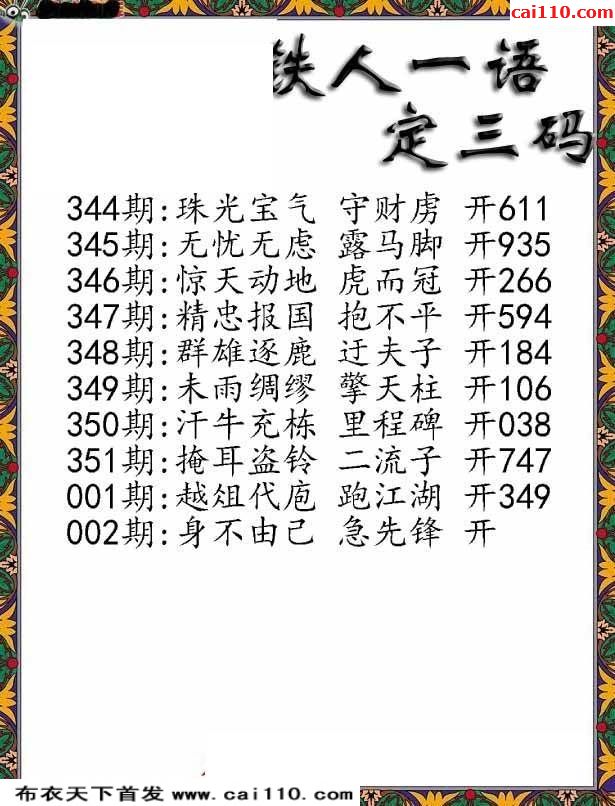 cai110.com
铁人一语
定三码
344期:珠光宝气 守财虏 开611
345期:无忧无虑 露马脚 开935
346期:惊天动地 虎而冠 开266
347期:精忠报国 抱不平 开594
348期:群雄逐鹿 迂夫子 开184
349期:未雨绸缪 擎天柱 开106
350期:汗牛充栋 里程碑 开038
351期:掩耳盗铃 二流子 开747
001期:越俎代庖 跑江湖 开349
002期:身不由己 急先锋 开
布衣天下首发 www.cai110.com